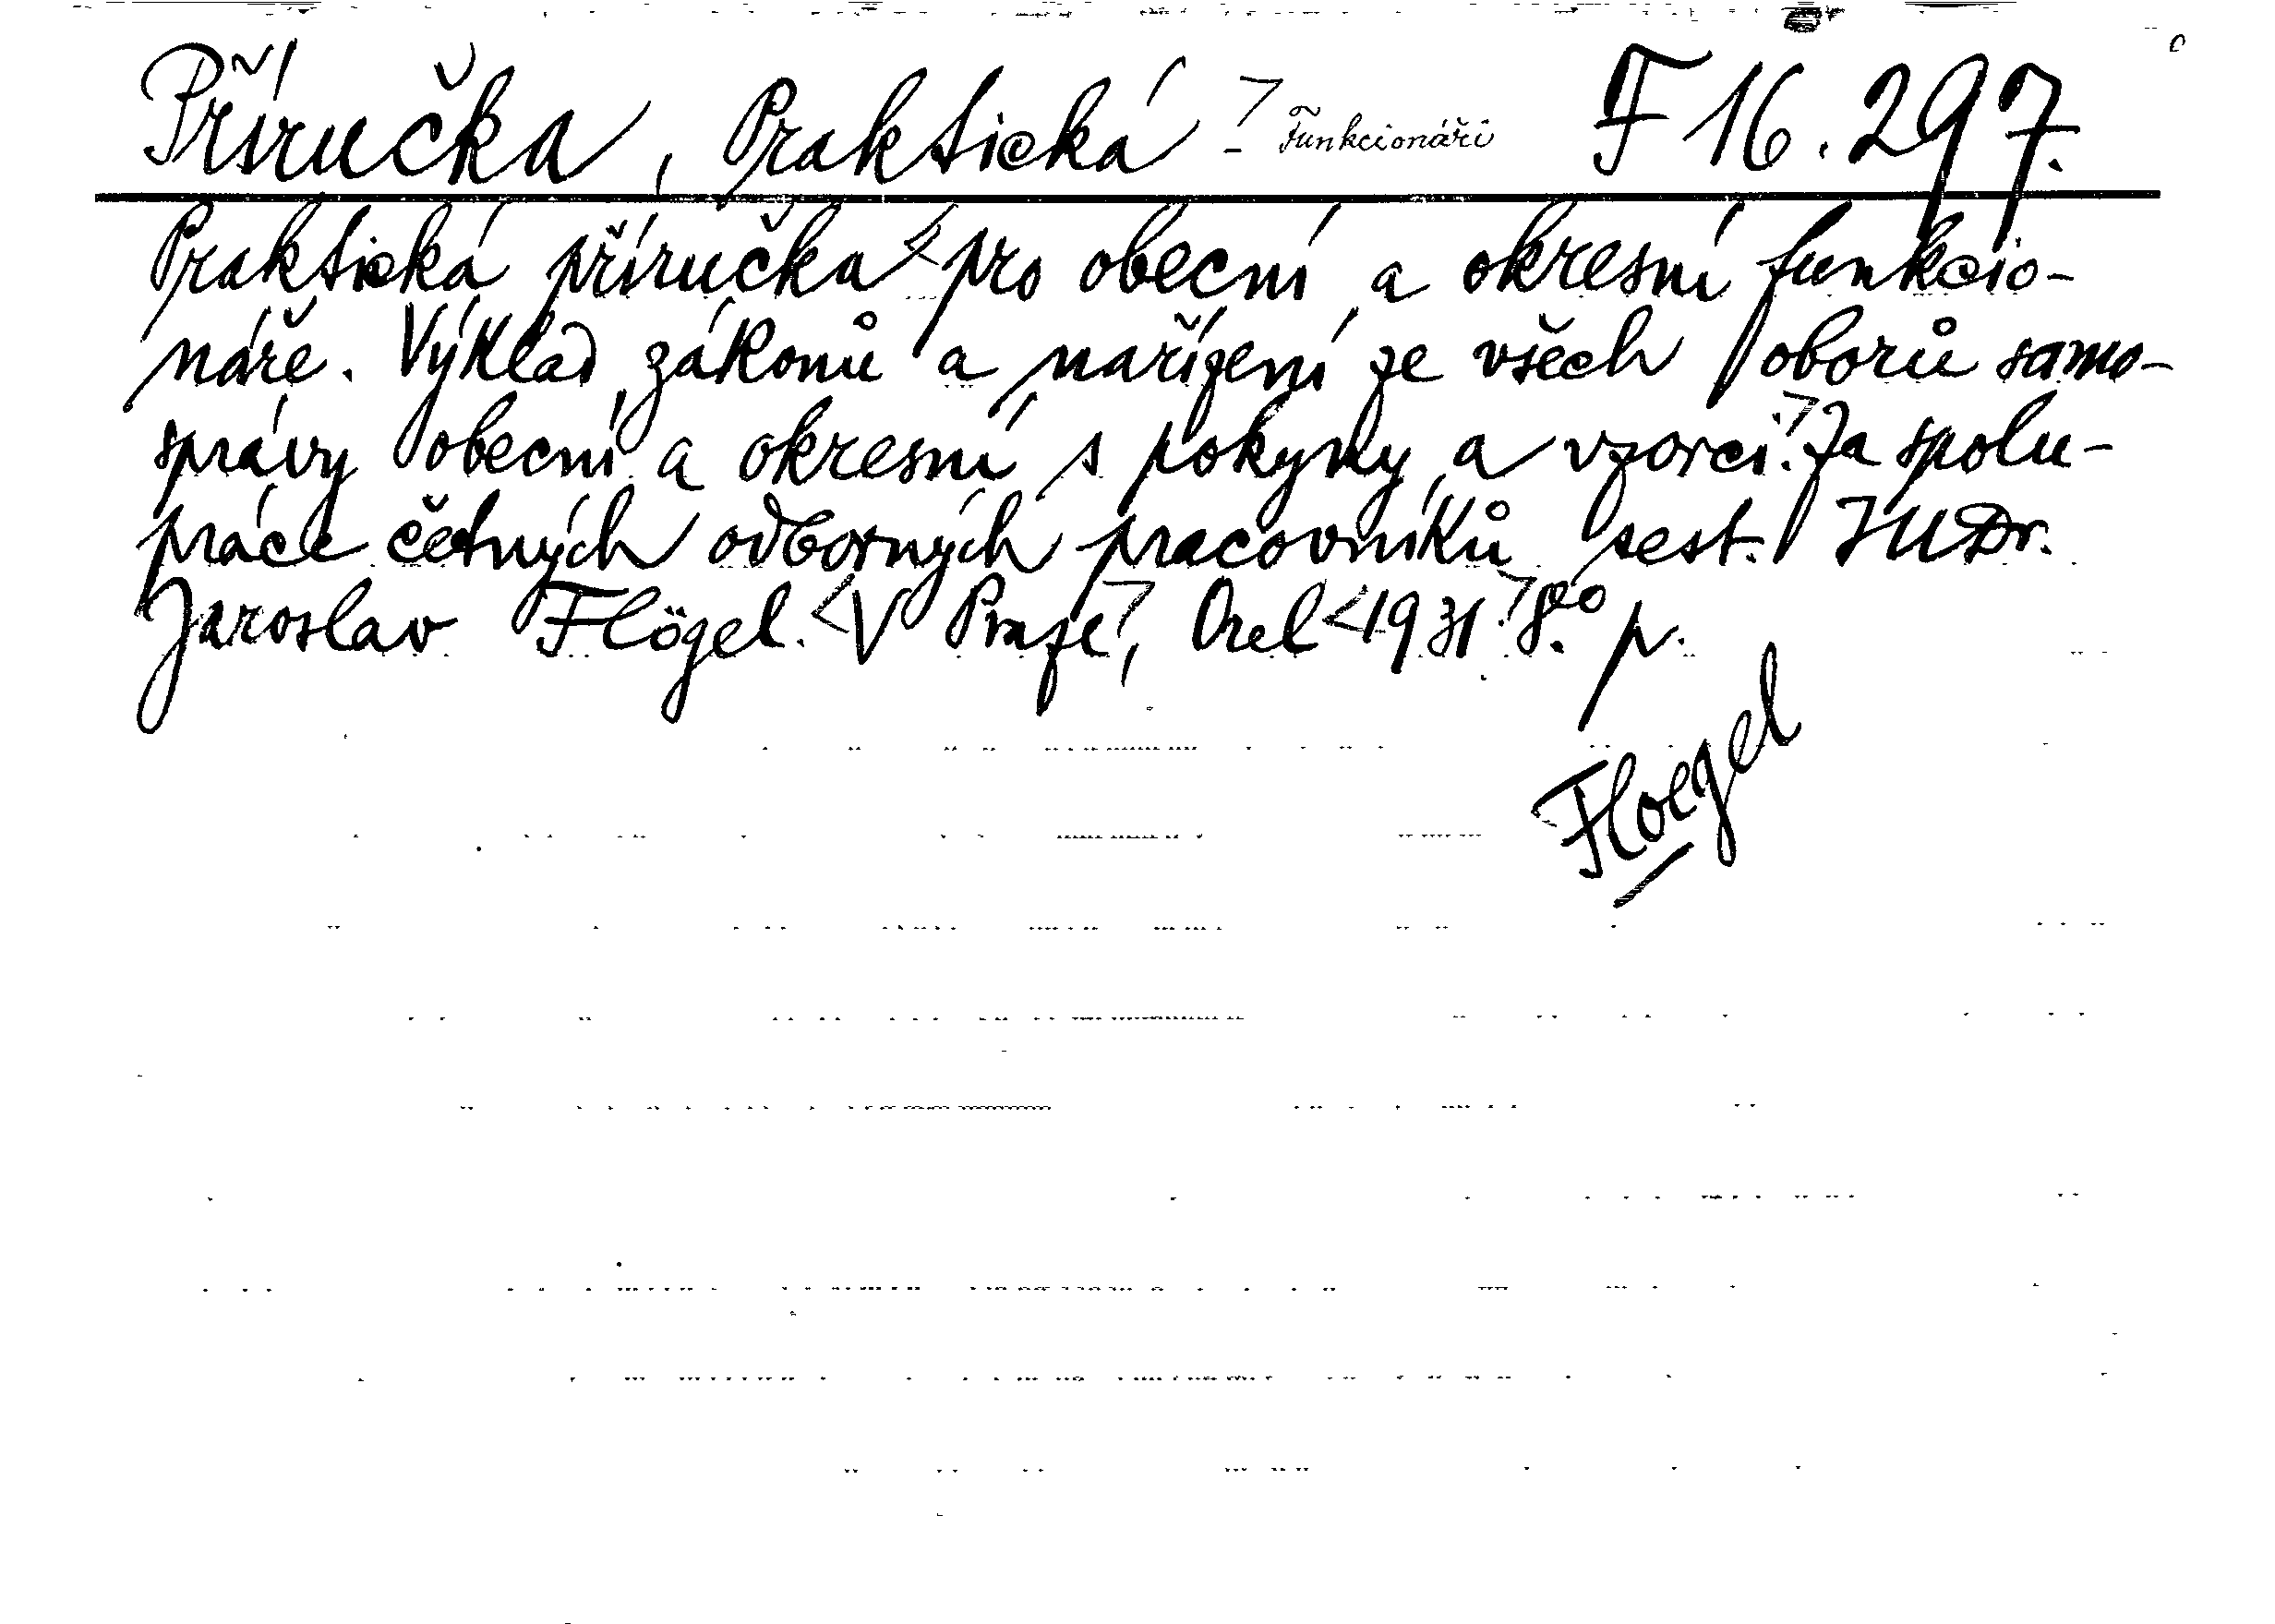 Příručka, Praktická - Funkcionáři F 16.297.
Praktická příručka pro obecní a okresní funkcio-
náře. Výklad zákonů a nařízení ze všech oborů samo-
správy obecní a okresní s pokyny a vzorci. Za spolu-
práce četných odborných pracovníků sest. JUDr.
Jaroslav Flögel. V Praze, Orel 1931. 8° p.
Floegel